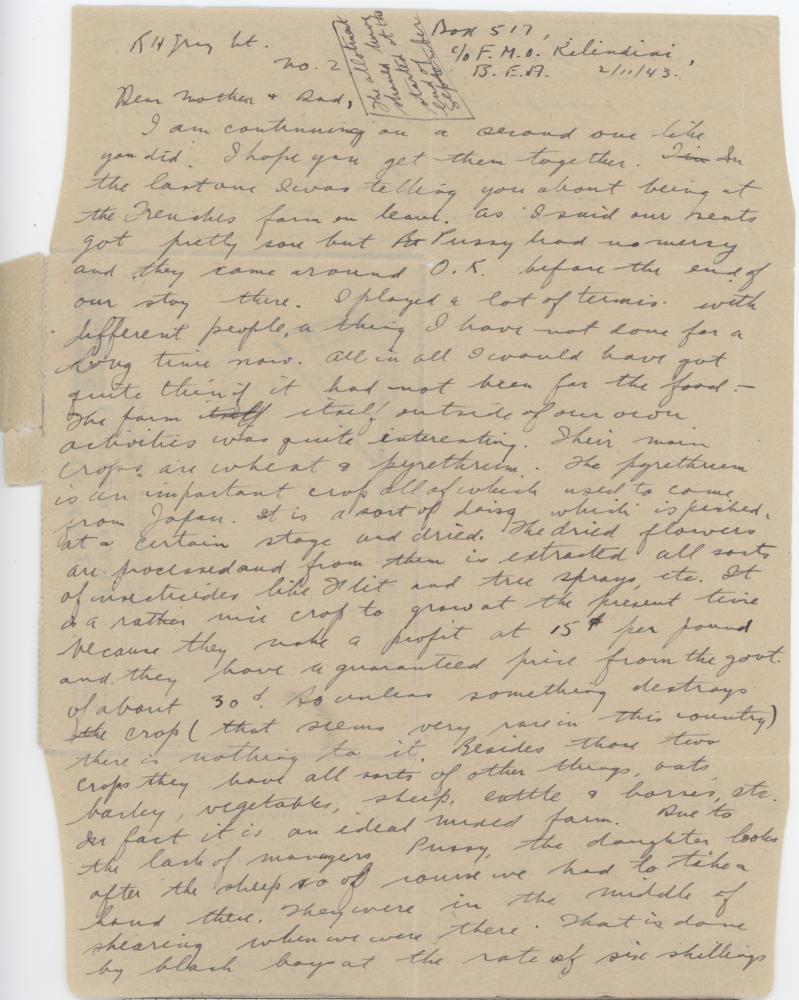 K H Gray Lt.
No. 2
The allotment
should have
started at the
start of
September
Box 517,
c/o F.M.O. Kilindini,
B.E.A. 2/11/43.
Dear Mother & Dad,
I am continuing on a second one like
you did. I hope you get them together. In
the last one I was telling you about being at
the Frenches farm on leave. As I said our seats
got pretty sore but Pussy had no mercy
and they came around O.K. before the end of
our stay there. I played a lot of tennis with
different people, a thing I have not done for a
long time now. All in all I would have got
quite thin if it had not been for the food. –
The farm itself itself outside of our own
activities was quite interesting. Their main
crops are wheat & pyrethrum. The pyrethrum
is an important crop all of which used to come
from Japan. It is a sort of daisy which is picked
at a certain stage and dried. The dried flowers
are processed and from them is extracted all sorts
of insecticides like Flit and tree sprays, etc. It
is a rather nice crop to grow at the present time
because they make a profit at 15d per pound
and they have a guaranteed price from the govt.
of about 30d. So unless something destroys
the crop (that seems very rare in this country)
there is nothing to it. Besides those two
crops they have all sorts of other things, oats,
barley, vegetables, sheep, cattle & horses, etc.
In fact it is an ideal mixed farm. Due to
the lack of managers Pussy, the daughter looks
after the sheep so of course we had to take a
hand there. They were in the middle of
shearing when we were there. That is done
by black boys at the rate of six shillings